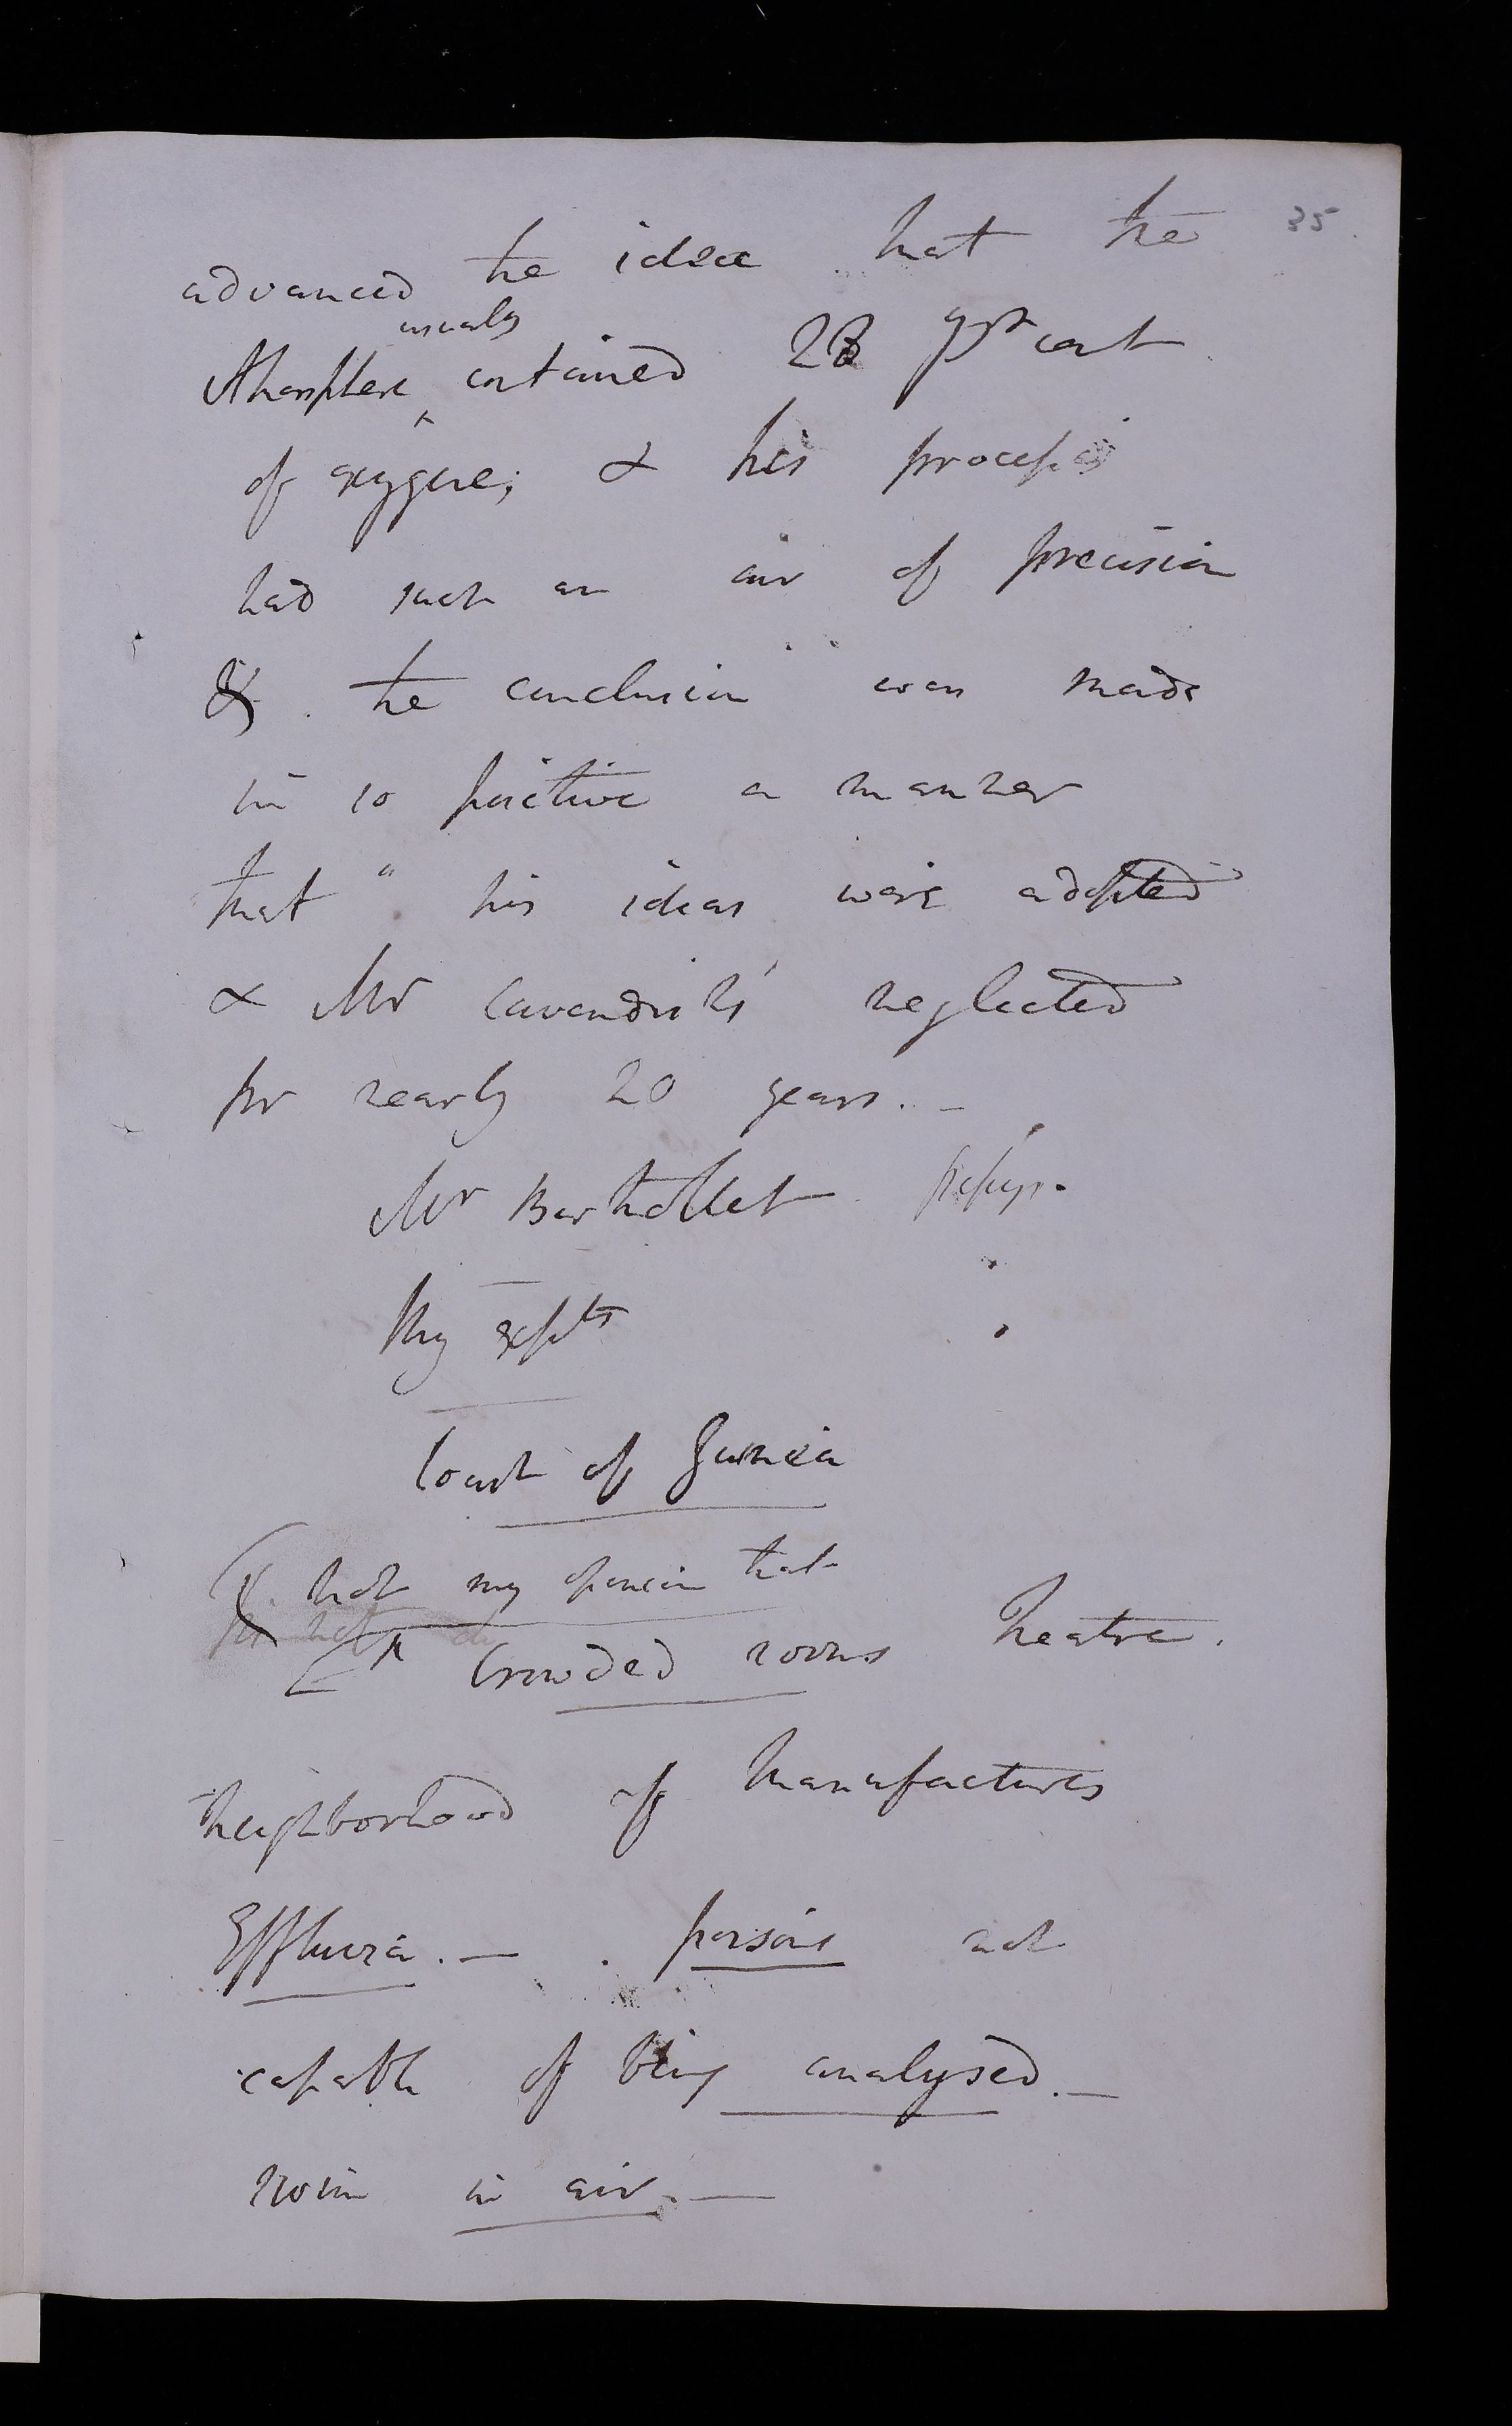 35
advanced the idea that the
usually
Atmosphere ^ contained 28 pr cent
of oxygene; & his process
had such an air of precision
& the conclusion was made
in so positive a manner
that " his ideas were adopted
& Mr Cavendish's neglected
for nearly 20 years. —
Mr Berthollet Pepys.
My expts
Coast of Guinea
& not my opinion that
Crowded rooms Theatre.
neighborhood of Manufactures
Effluvia. — poisons not
capable of being analysed. —
in air. —